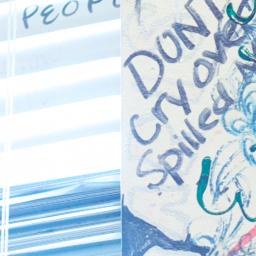 PEOPL
DON'T
Cry over
Spilled